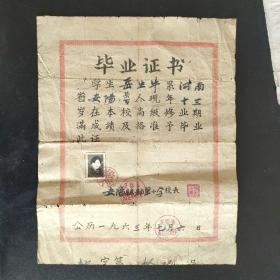 毕业证书
学生岳生系河南
省安阳县人现年十三
岁在本校高级修业期
满成绩及格准予毕业
此证
安阳县都里小学校长
公历一九六三年七月六日
字第 号